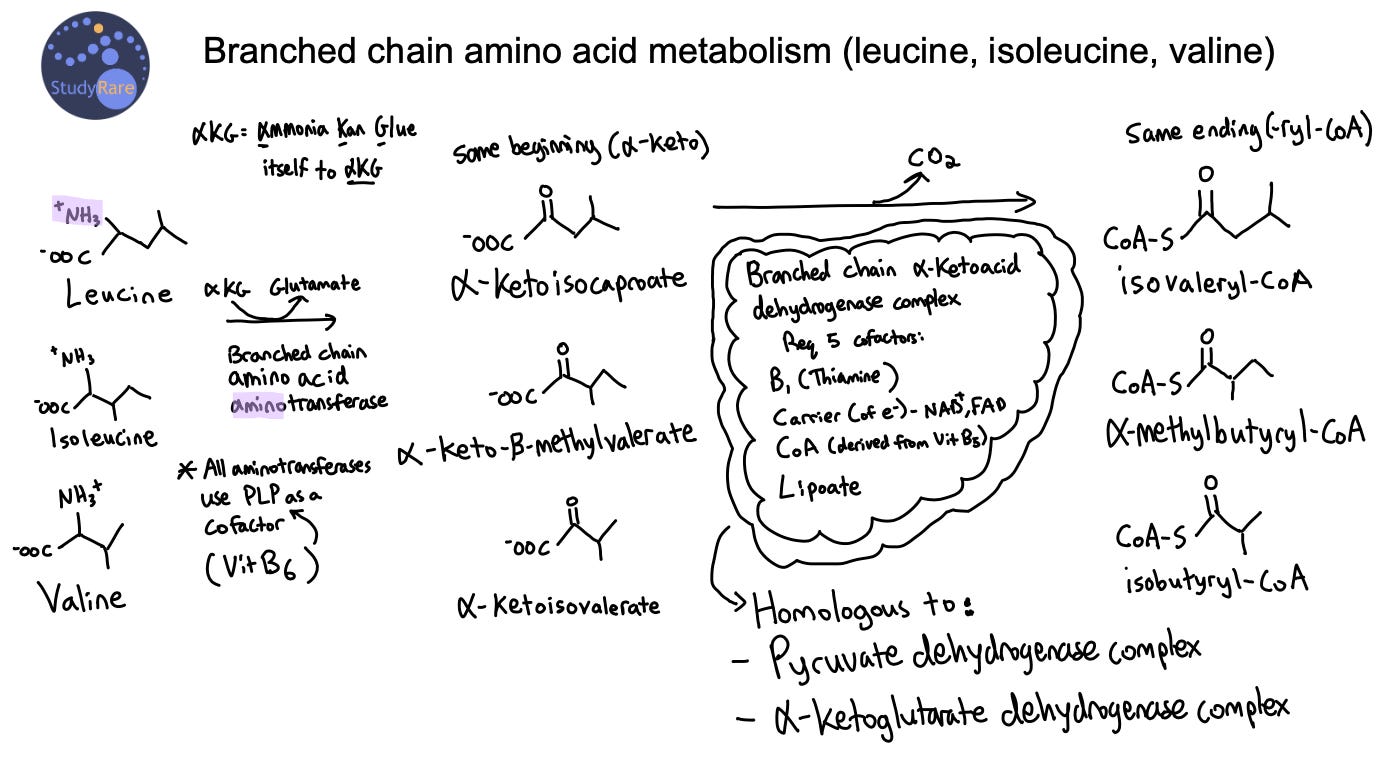 StudyRare
Branched chain amino acid metabolism (leucine, isoleucine, valine)
αKG = αmmonia Kan Glue
itself to αKG
Same beginning (α-keto)
CO₂
Same ending (-ryl-CoA)
⁺NH₃
⁻OOC
Leucine
αKG Glutamate
Branched chain
amino acid
aminotransferase
⁺NH₃
⁻OOC
Isoleucine
* All aminotransferases
use PLP as a
cofactor
(Vit B₆)
NH₃⁺
⁻OOC
Valine
O
⁻OOC
α-Ketoisocaproate
O
⁻OOC
α-Keto-β-methylvalerate
O
⁻OOC
α-Ketoisovalerate
Branched chain α-Ketoacid
dehydrogenase complex
Req 5 cofactors:
B₁ (Thiamine)
Carrier (of e⁻) - NAD⁺, FAD
CoA (derived from Vit B₅)
Lipoate
Homologous to:
- Pyruvate dehydrogenase complex
- α-Ketoglutarate dehydrogenase complex
O
CoA-S
isovaleryl-CoA
O
CoA-S
α-methylbutyryl-CoA
O
CoA-S
isobutyryl-CoA